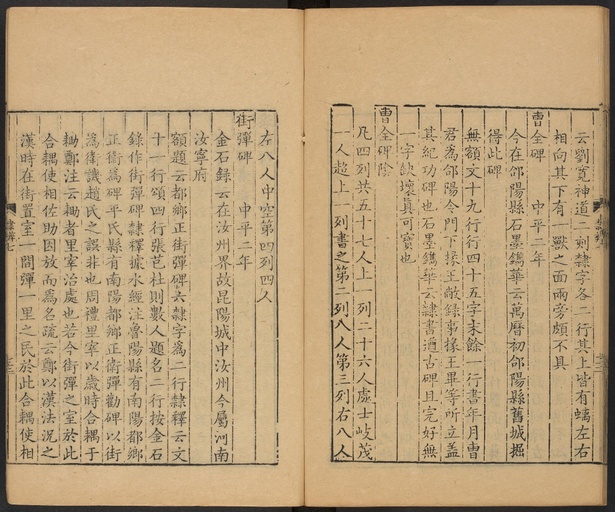 云劉寬神道二刻隸字各二行其上皆有螭左右
相向其下有一獸之面兩旁頗不具
曹全碑 中平二年
今在郃陽縣石墨鐫華云萬曆初郃陽縣舊城掘
得此碑
無額文十九行行四十五字末餘一行書年月曹
君爲郃陽令門下掾王敞錄事掾王畢等所立蓋
其紀功碑也石墨鐫華云隸書遒古碑且完好無
一字缺壞真可寶也
曹全碑陰
凡四列共五十七人上一列二十六人處士岐茂
一人超上一列書之第一列八人第三列右八人
左八人中空第四列四人
街彈碑 中平二年
金石錄云在汝州界故昆陽城中汝州今屬河南
汝寧府
額題云都鄉正街彈碑六隸字爲二行隸釋云文
十一行頌四行張芭杜則數人題名二行按金石
錄作街彈碑隸釋據水經注魯陽縣有南陽都鄉
正衛爲碑平氏縣有南陽都鄉正衛彈勸碑以街
爲衛譏趙氏之誤非也周禮里宰以歲時合耦于
耡鄭注云耡者里宰治處也若今街彈之室於此
合耦使相佐助因放而爲名疏云鄭以漢法況之
漢時在街置室一間彈一里之民於此合耦使相